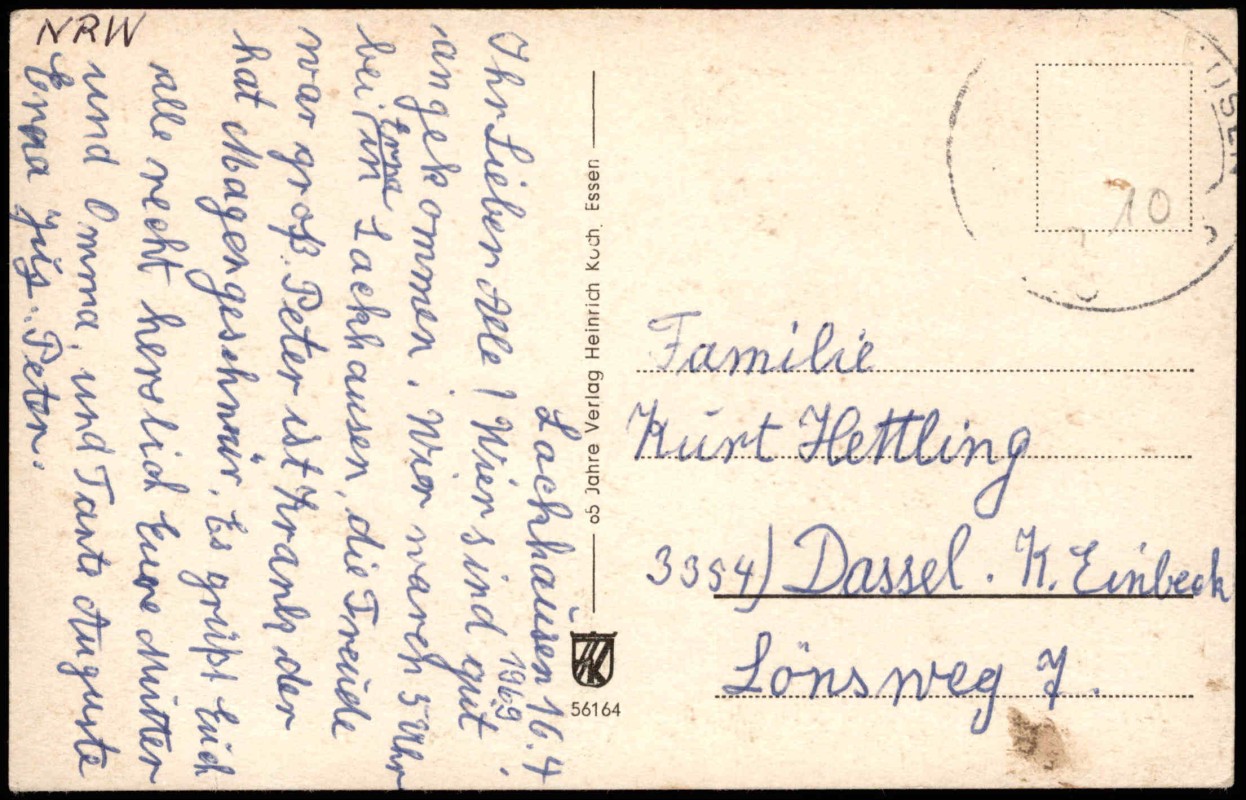 NRW
Lachhausen 16.4.
1969
Ihr Lieben Alle! Wier sind gut
angekommen. Wier waren 5 Uhr
bei Erna in Lackhausen, die Freude
war groß. Peter ist Krank der
hat Magengeschwür. Es grüßt Euch
alle recht herslich Eure Mutter
und Omma, und Tante Auguste
Erna Peter.
65 Jahre Verlag Heinrich Koch, Essen
HK
56164
10
Familie
Kurt Hettling
3354) Dassel. K. Einbeck
Lönsweg 7.